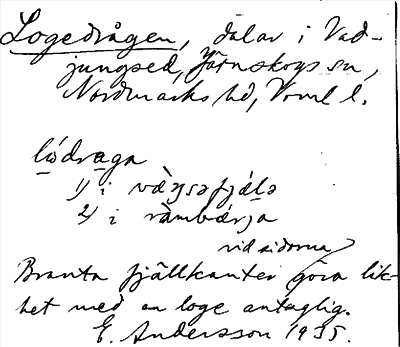 Logedrågen, dalar i Vad-
jungsed, Järnskogs sn,
Nordmarks hd, Vrml l.
lódraga
1) i
2) i
vid sidorna
Branta fjällkanter göra lik-
het med en loge antaglig.
E. Andersson 1935.